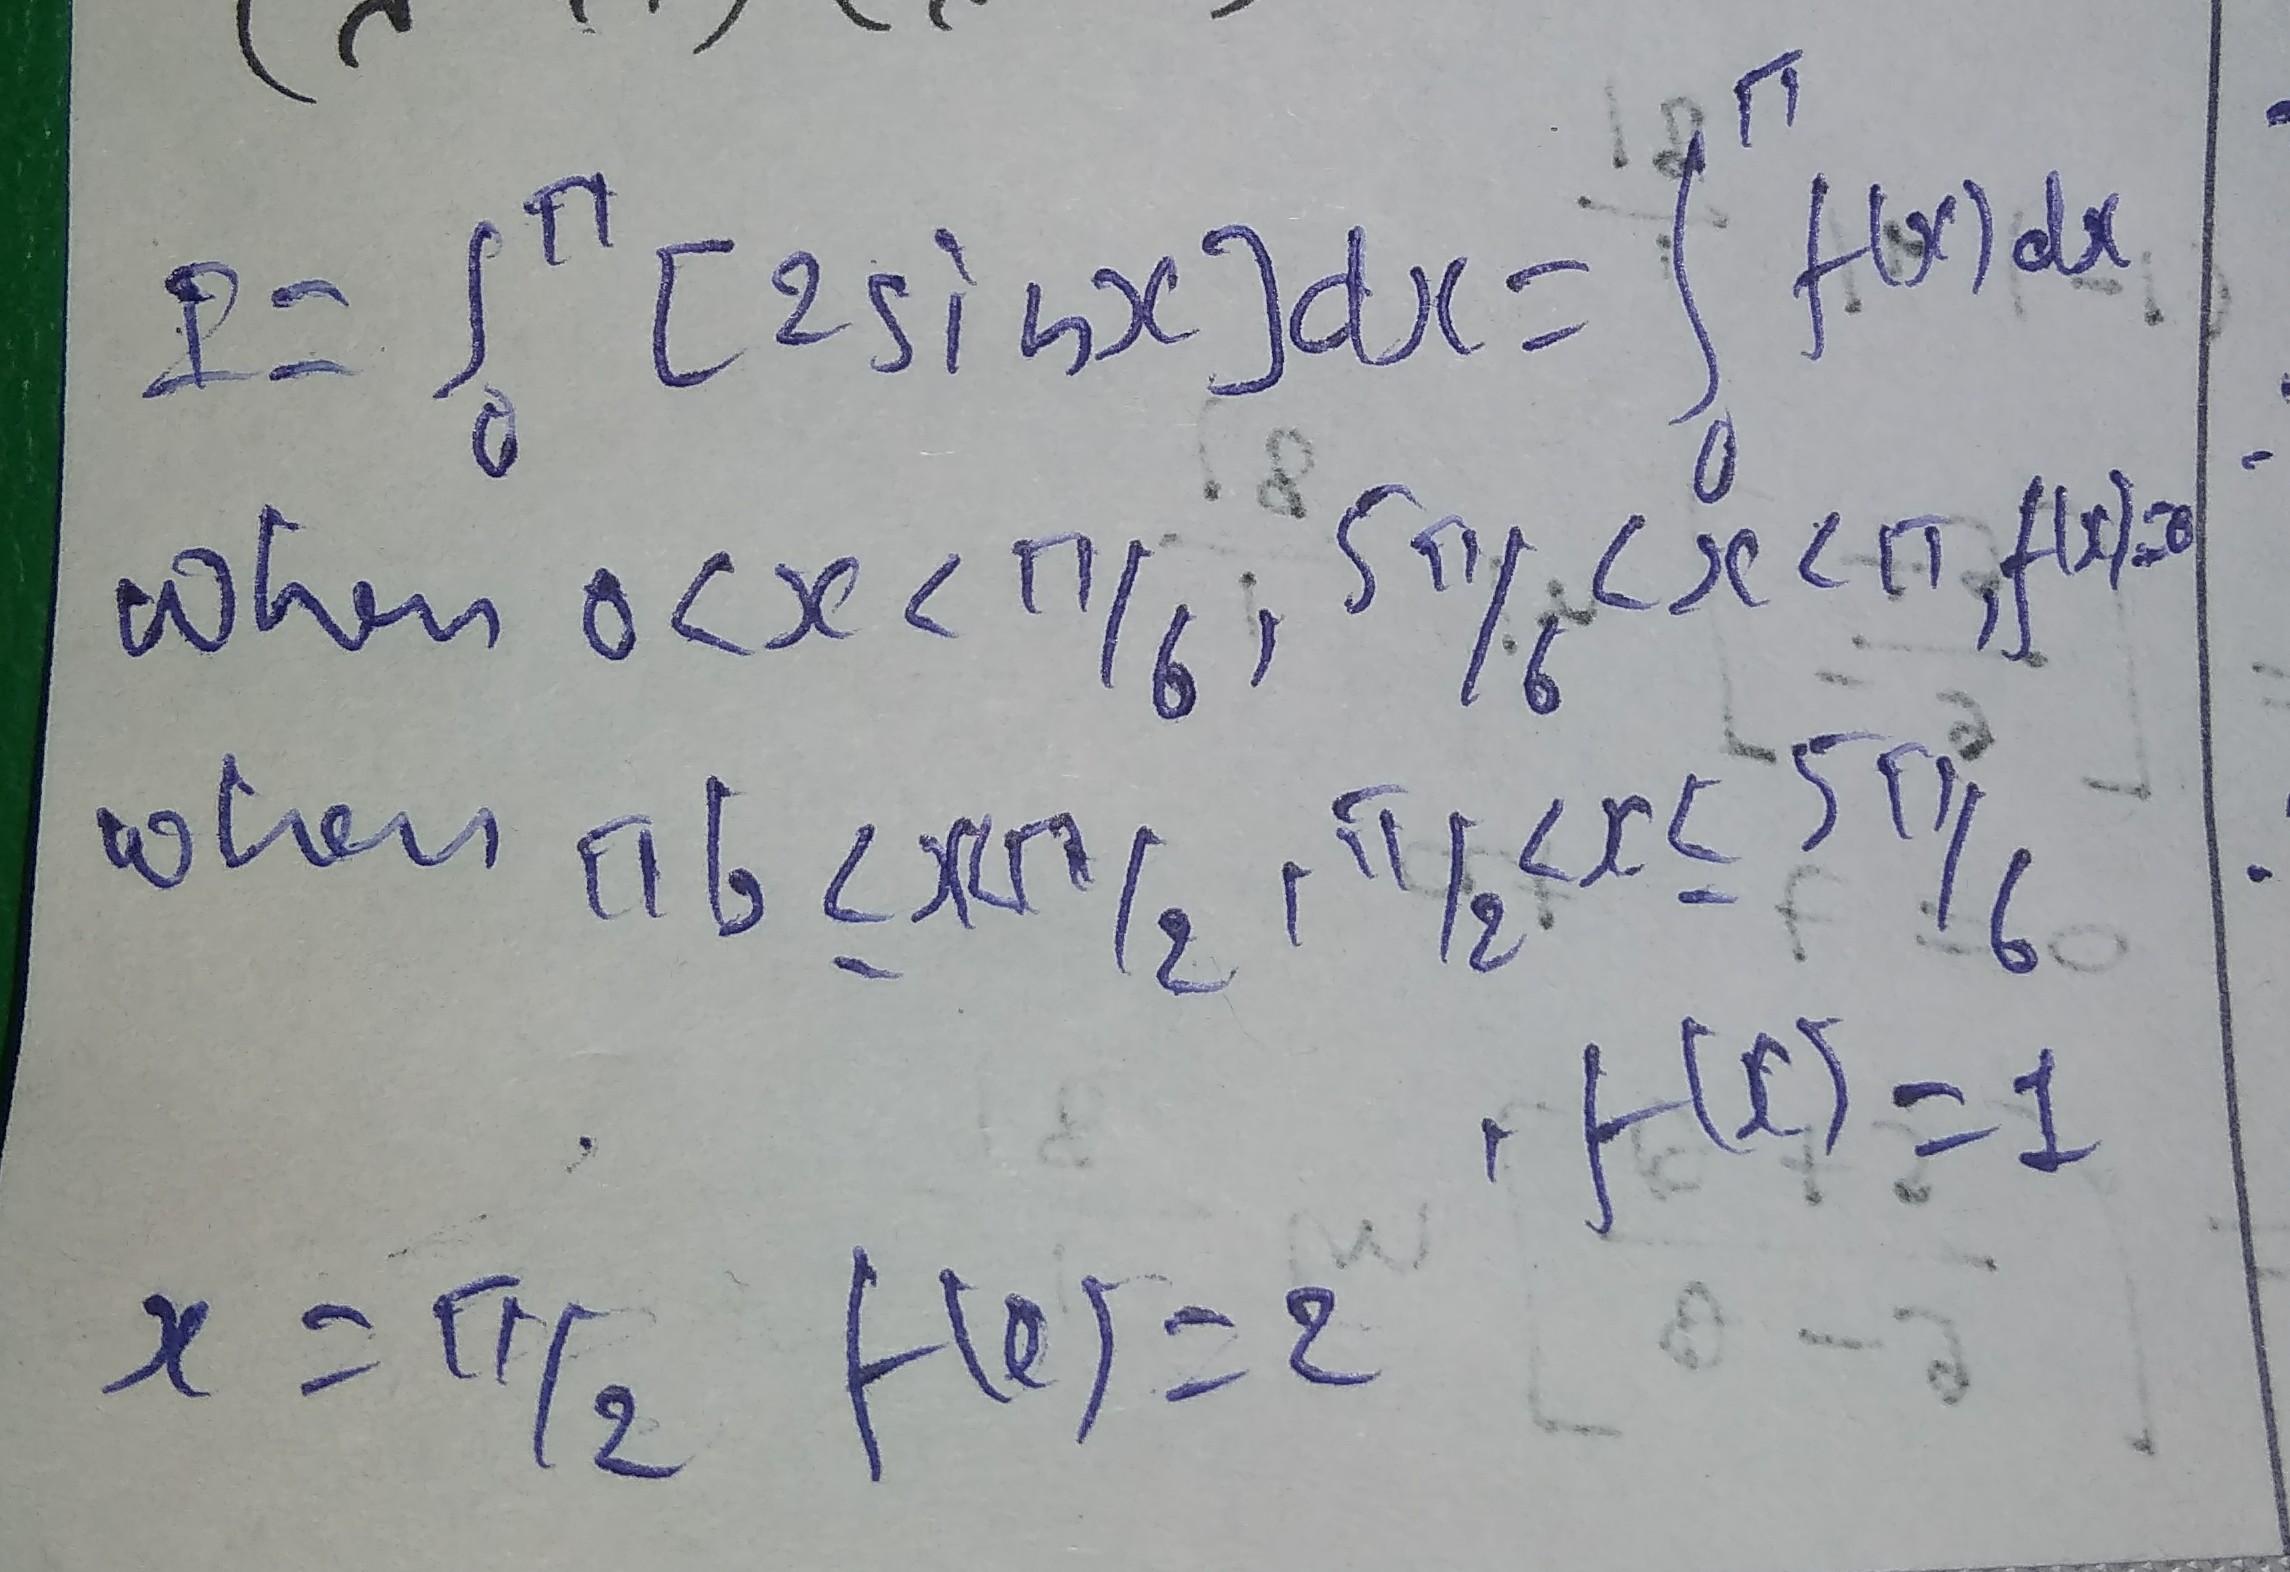 I = ∫₀^π [2 sin x] dx = ∫₀^π f(x) dx
when 0 < x < π/6, 5π/6 < x < π, f(x)=0
when π6 ≤ x<π/2, π/2 < x ≤ 5π/6
, f(x) = 1
x = π/2 f(x) = 2